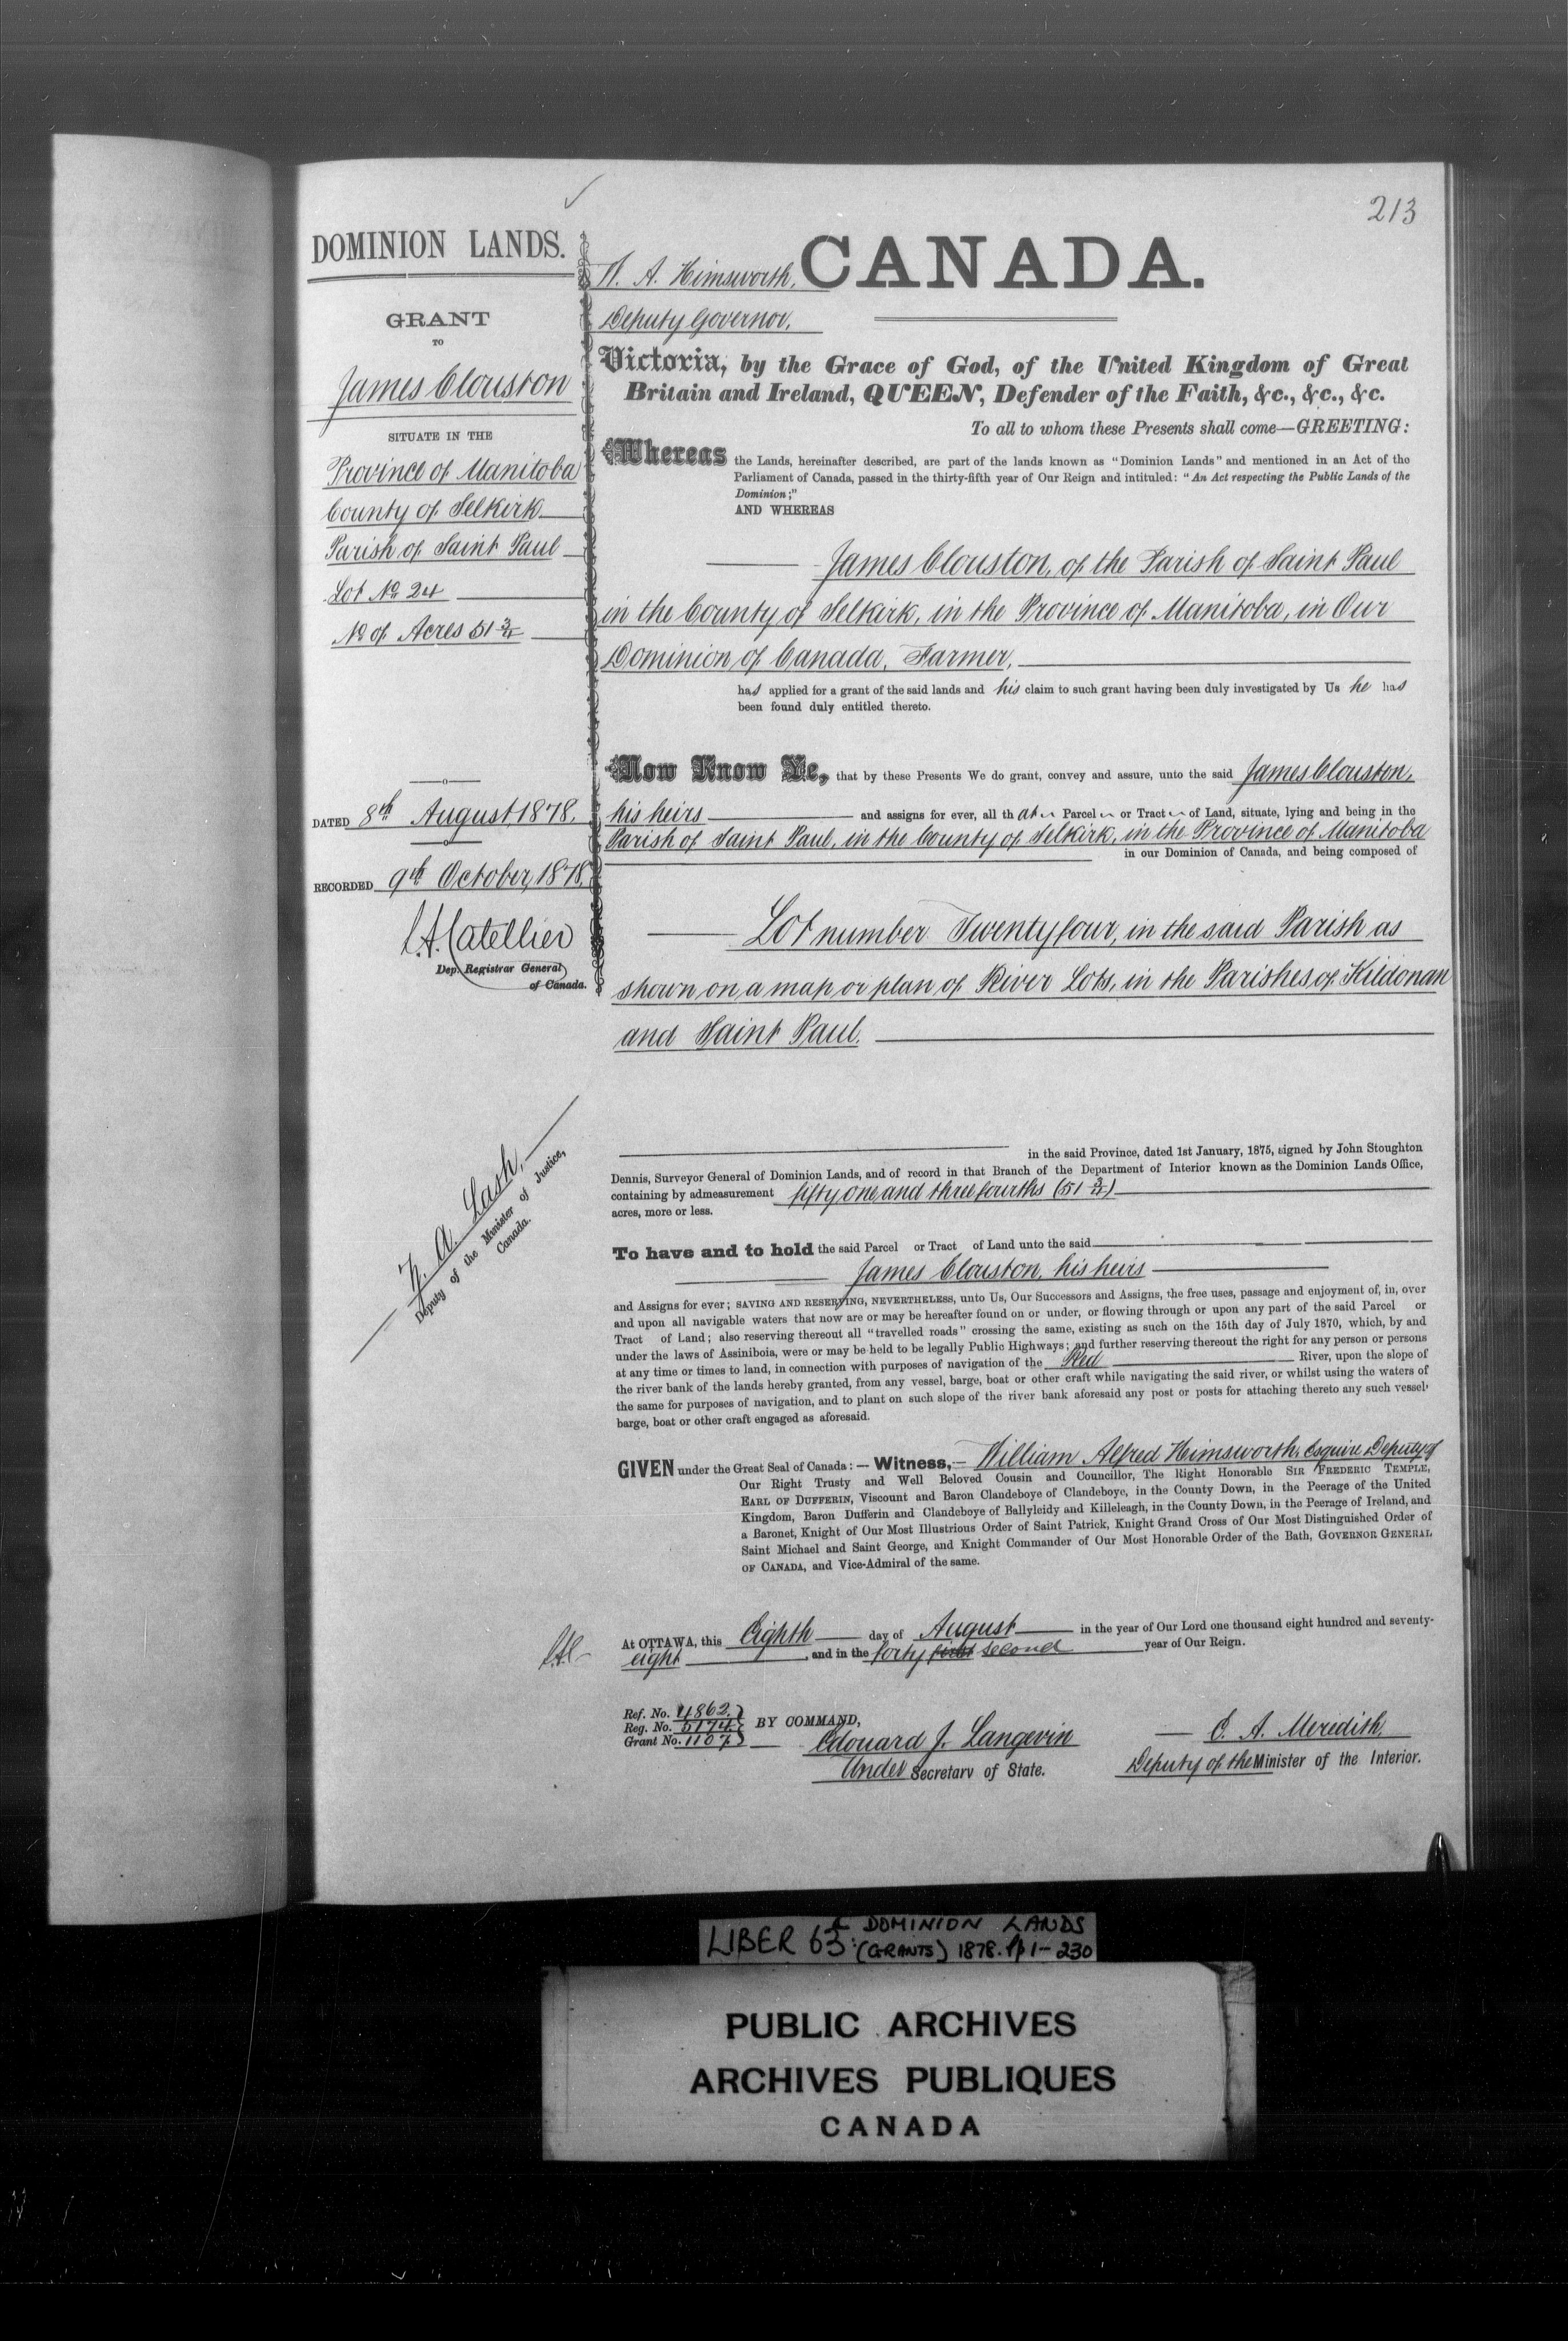 213
DOMINION LANDS.
GRANT
TO
James Clouston
SITUATE IN THE
Province of Manitoba
County of Selkirk
Parish of Saint Paul
Lot No 24
No of Acres 51 3/4
DATED 8th August, 1878.
RECORDED 9th October, 1878.
L.A. Catellier
Dep. Registrar General
of Canada.
Z. A. Lash,
Deputy of the Minister of Justice,
Canada.
W. A. Himsworth,
CANADA.
Deputy Governor.
Victoria, by the Grace of God, of the United Kingdom of Great
Britain and Ireland, QUEEN, Defender of the Faith, &c., &c., &c.
To all to whom these Presents shall come—GREETING:
Whereas the Lands, hereinafter described, are part of the lands known as "Dominion Lands" and mentioned in an Act of the
Parliament of Canada, passed in the thirty-fifth year of Our Reign and intituled: "An Act respecting the Public Lands of the
Dominion;"
AND WHEREAS
James Clouston, of the Parish of Saint Paul
in the County of Selkirk, in the Province of Manitoba, in Our
Dominion of Canada, Farmer,
has applied for a grant of the said lands and his claim to such grant having been duly investigated by Us he has
been found duly entitled thereto.
Now Know Ye, that by these Presents We do grant, convey and assure, unto the said James Clouston,
his heirs and assigns for ever, all that Parcel or Tract of Land, situate, lying and being in the
Parish of Saint Paul, in the County of Selkirk, in the Province of Manitoba
in our Dominion of Canada, and being composed of
Lot number Twenty four, in the said Parish as
shown on a map or plan of River Lots, in the Parishes of Kildonan
and Saint Paul.
in the said Province, dated 1st January, 1875, signed by John Stoughton
Dennis, Surveyor General of Dominion Lands, and of record in that Branch of the Department of Interior known as the Dominion Lands Office,
containing by admeasurement fifty one and three fourths (51 3/4)
acres, more or less.
To have and to hold the said Parcel or Tract of Land unto the said
James Clouston, his heirs
and Assigns for ever; SAVING AND RESERVING, NEVERTHELESS, unto Us, Our Successors and Assigns, the free uses, passage and enjoyment of, in, over
and upon all navigable waters that now are or may be hereafter found on or under, or flowing through or upon any part of the said Parcel or
Tract of Land; also reserving thereout all "travelled roads" crossing the same, existing as such on the 15th day of July 1870, which, by and
under the laws of Assiniboia, were or may be held to be legally Public Highways; and further reserving thereout the right for any person or persons
at any time or times to land, in connection with purposes of navigation of the Red River, upon the slope of
the river bank of the lands hereby granted, from any vessel, barge, boat or other craft while navigating the said river, or whilst using the waters of
the same for purposes of navigation, and to plant on such slope of the river bank aforesaid any post or posts for attaching thereto any such vessel,
barge, boat or other craft engaged as aforesaid.
GIVEN under the Great Seal of Canada:— Witness,— William Alfred Himsworth, Esquire Deputy of
Our Right Trusty and Well Beloved Cousin and Councillor, The Right Honorable SIR FREDERIC TEMPLE,
EARL OF DUFFERIN, Viscount and Baron Clandeboye of Clandeboye, in the County Down, in the Peerage of the United
Kingdom, Baron Dufferin and Clandeboye of Ballyleidy and Killeleagh, in the County Down, in the Peerage of Ireland, and
a Baronet, Knight of Our Most Illustrious Order of Saint Patrick, Knight Grand Cross of Our Most Distinguished Order of
Saint Michael and Saint George, and Knight Commander of Our Most Honorable Order of the Bath, GOVERNOR GENERAL
OF CANADA, and Vice-Admiral of the same.
At OTTAWA, this Eighth day of August in the year of Our Lord one thousand eight hundred and seventy-
eight, and in the forty first second year of Our Reign.
Ref. No. 4862
Reg. No. 5174
Grant No. 1107
BY COMMAND,
Edouard J. Langevin
Under Secretary of State.
E. A. Meredith,
Deputy of the Minister of the Interior.
LIBER 63: DOMINION LANDS
(GRANTS) 1878. pp 1-230
PUBLIC ARCHIVES
ARCHIVES PUBLIQUES
CANADA